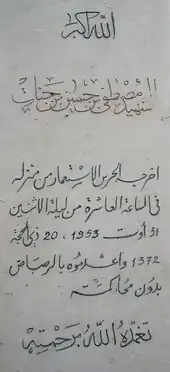 الله أكبر
الشهيد مصطفى بن حسين بن جنات
اخرجه الحرس الاستعمار من منزله
في الساعة العاشرة من ليلة الاثنين
31 أوت 1953 ، 20 ذي الحجة
1372 واعدموه بالرصاص
بدون محاكمته
تغمّده الله برحمته